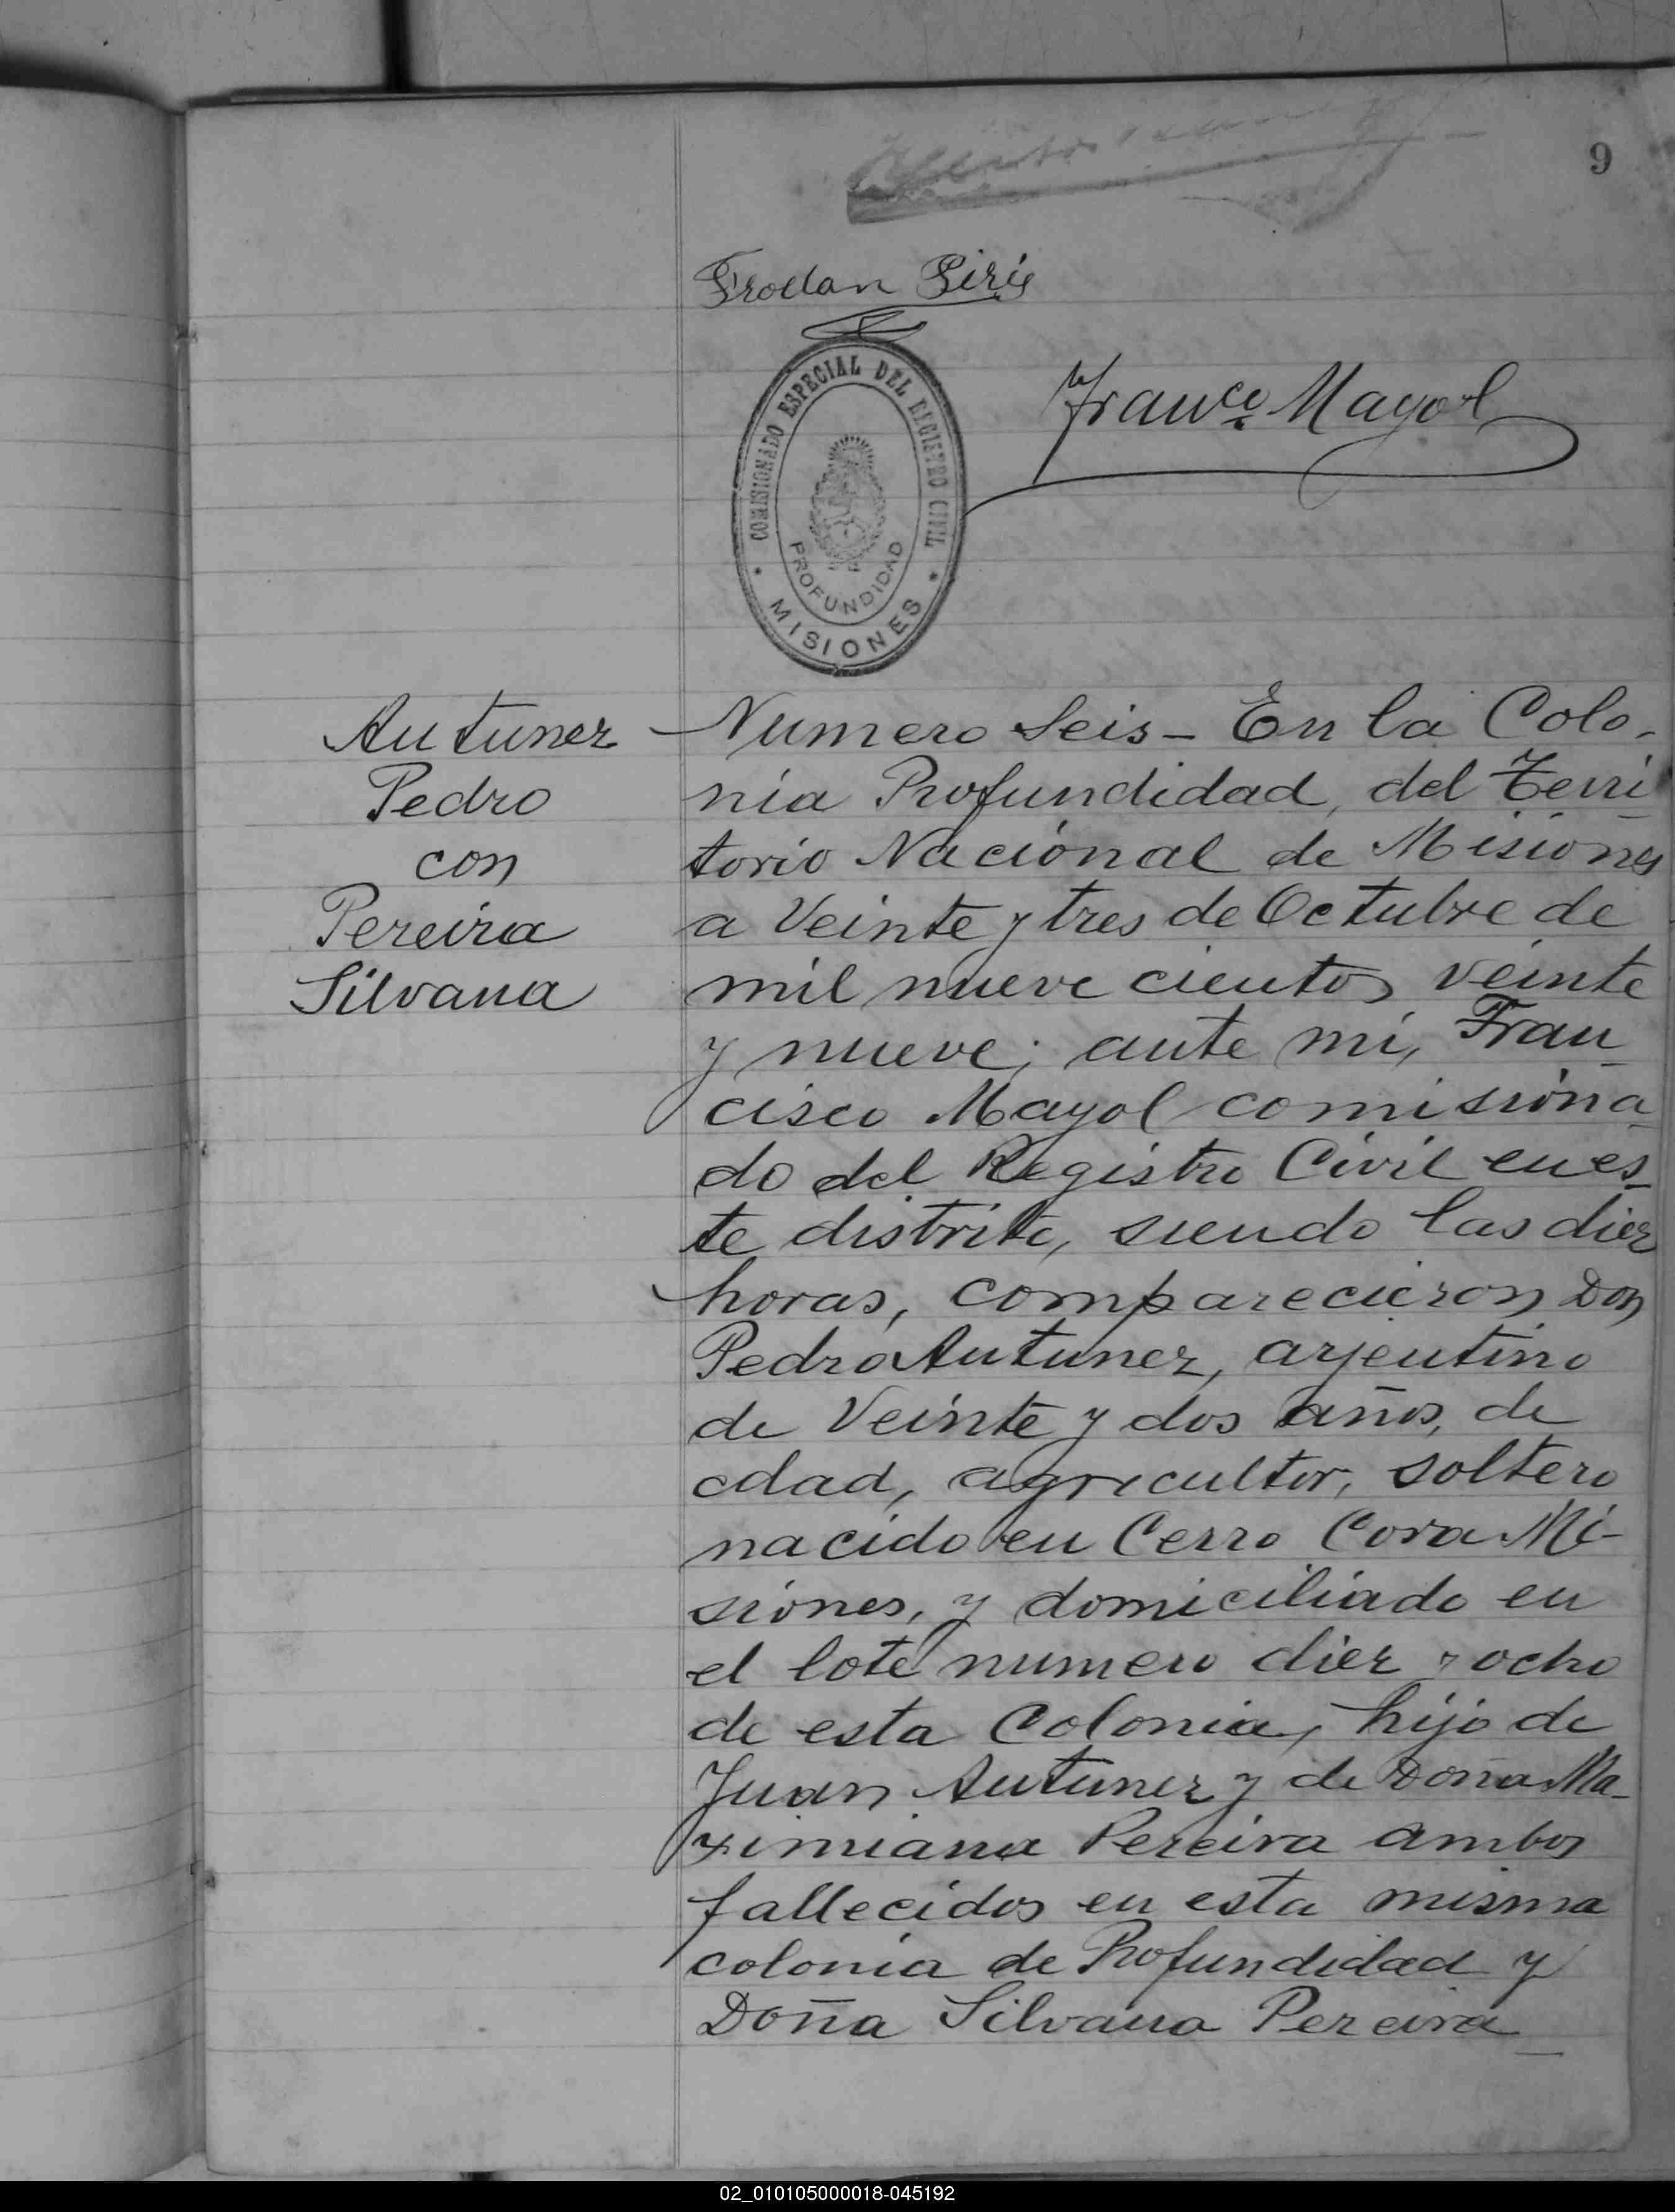 9
Frodan Piris
Franco. Mayol
COMISIONADO ESPECIAL DEL REGISTRO CIVIL
PROFUNDIDAD
MISIONES
Antunez
Pedro
con
Pereira
Silvana
Numero Seis - En la Colo-
nia Profundidad, del Terri-
torio Nacional de Misiones
a Veinte y tres de Octubre de
mil nueve cientos veinte
y nueve; ante mi, Fran-
cisco Mayol comisiona-
do del Registro Civil en es-
te distrito, siendo las diez
horas, comparecieron Don
Pedro Antunez, arjentino
de Veinte y dos años, de
edad, agricultor, soltero
nacido en Cerro Cora Mi-
siones, y domiciliado en
el lote numero diez y ocho
de esta Colonia, hijo de
Juan Antunez y de Doña Ma-
ximiana Pereira ambos
fallecidos en esta misma
colonia de Profundidad y
Doña Silvana Pereira
02_010105000018-045192